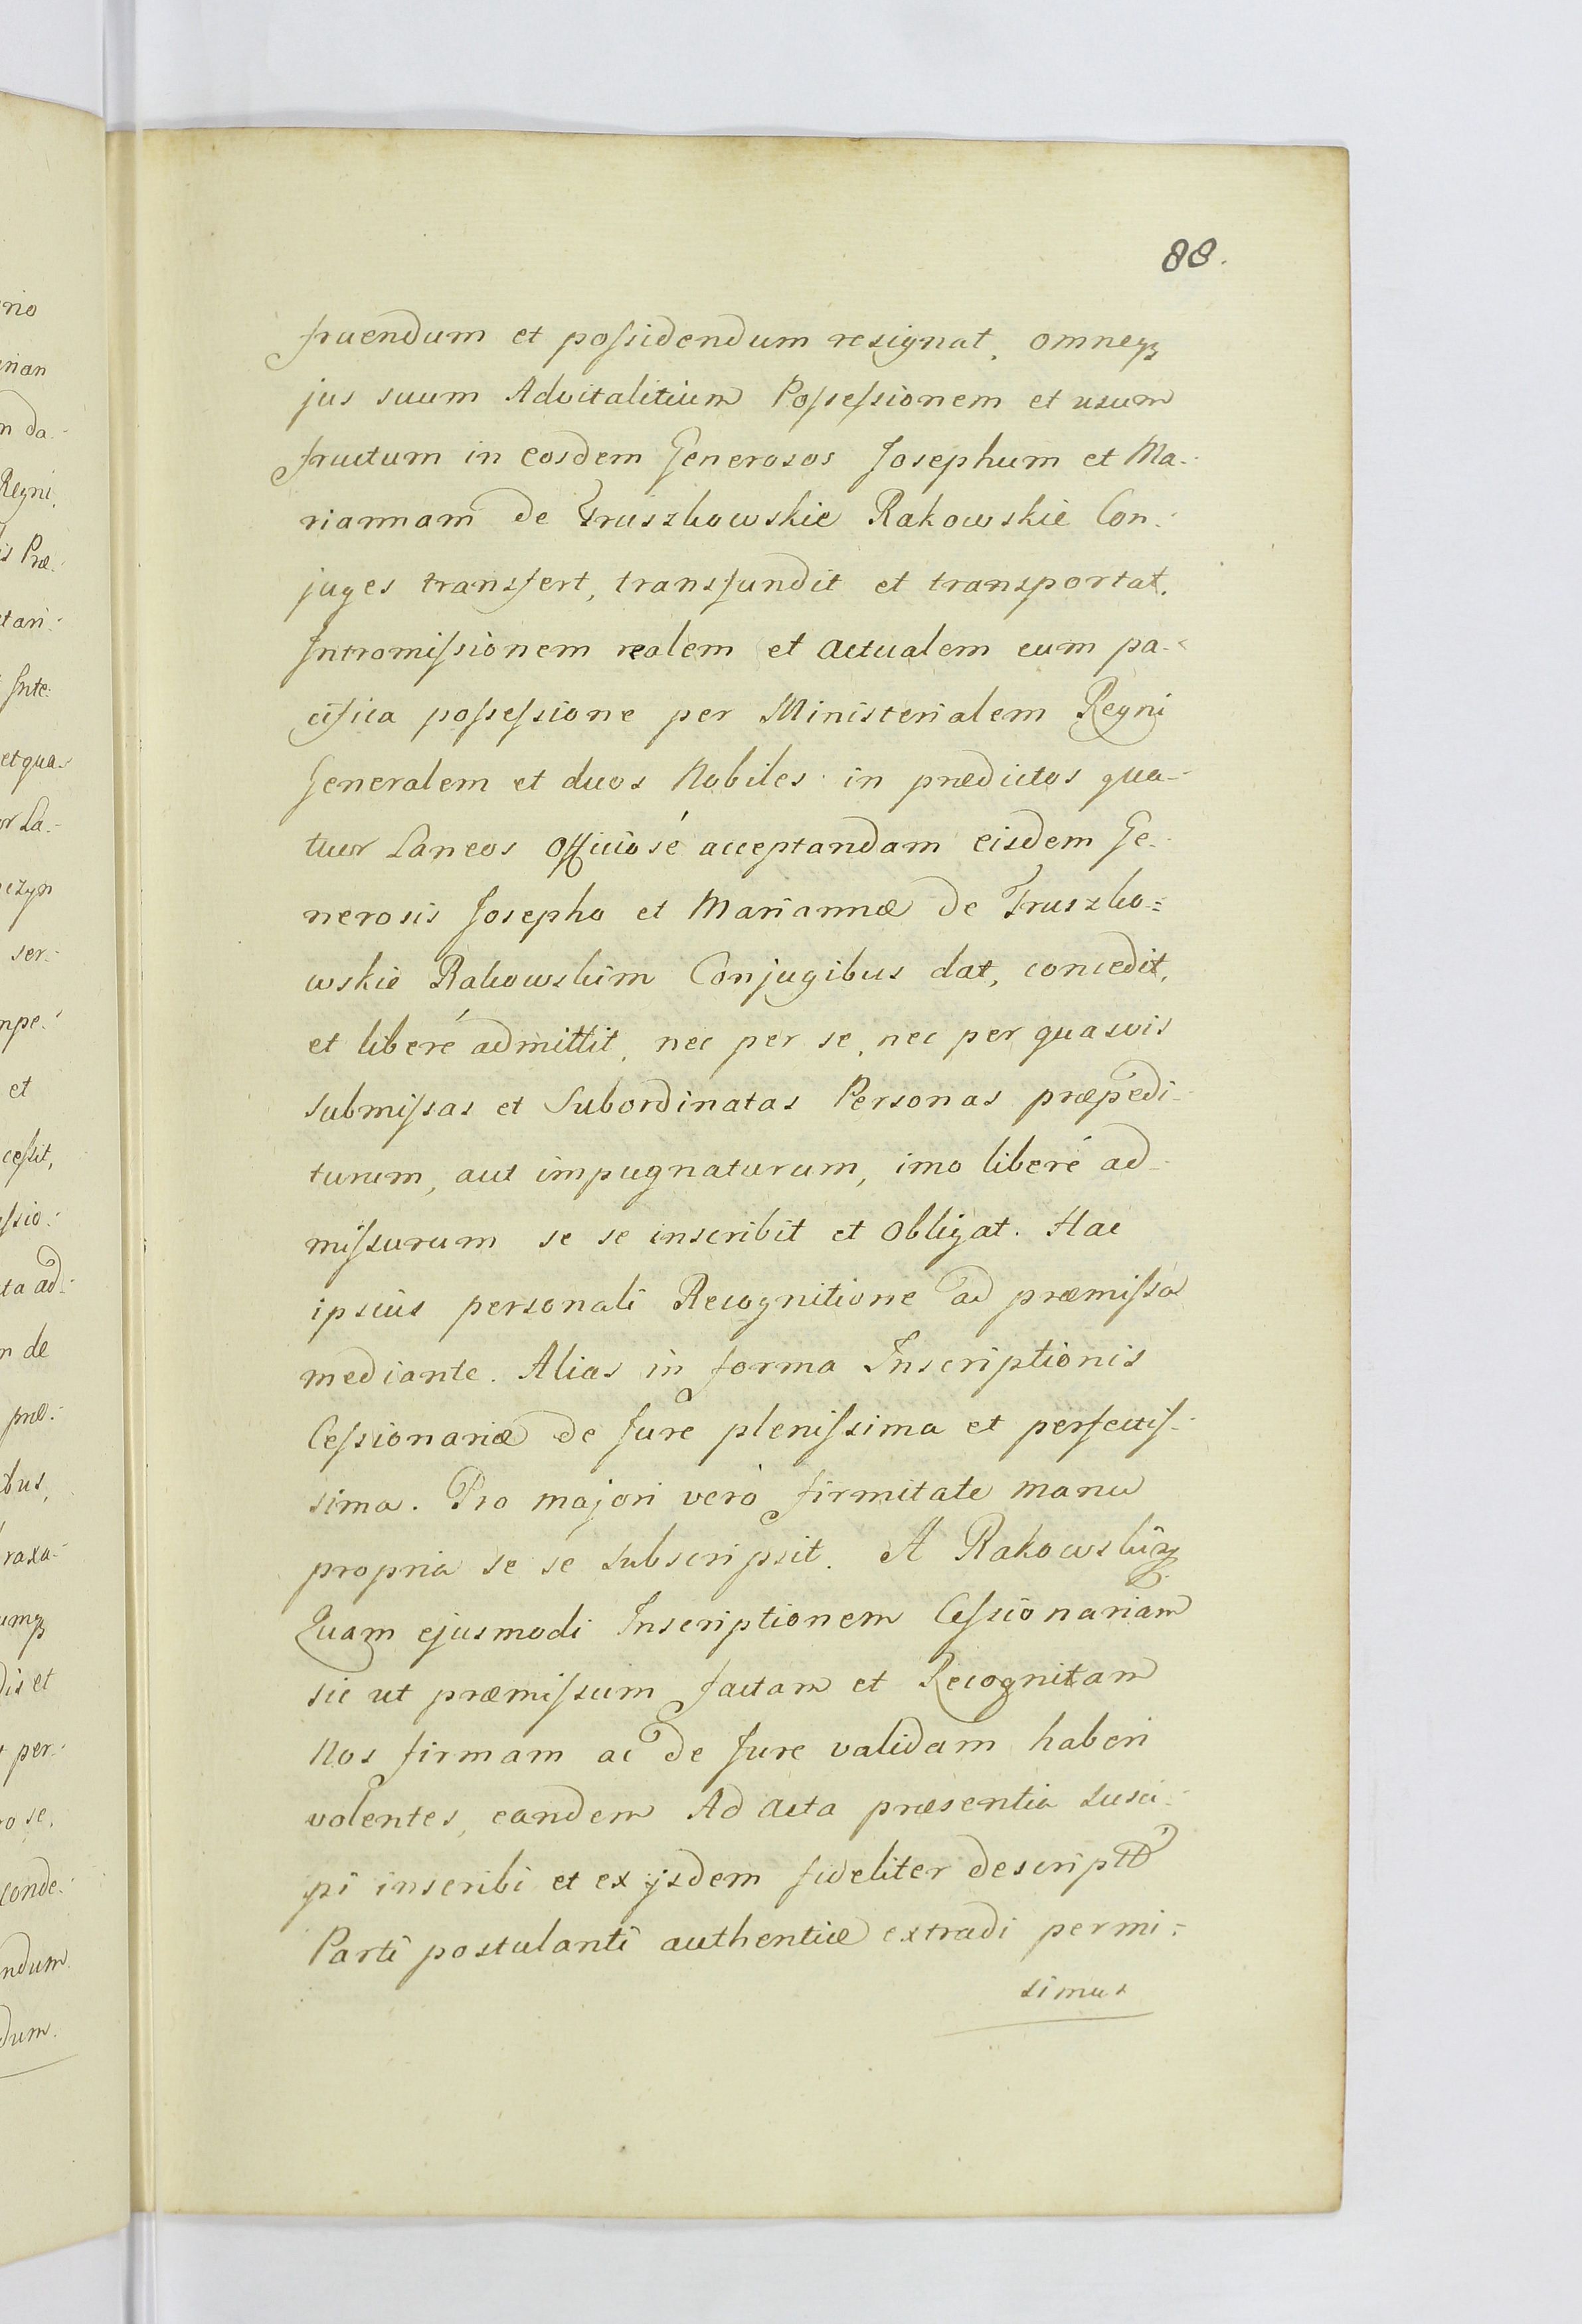 88.
fruendum et possidendum resignat, omneq₃
jus suum Advitalitium Possessionem et usum
fructum in eosdem Generosos Josephum et Ma-
riannam de Truszkowskie Rakowskie Con-
juges transfert, transfundit et transportat.
Intromissionem realem et actualem cum pa-
cifica possessione per Ministerialem Regni
Generalem et duos Nobiles in prædictos qua-
tuor Laneos officiosé acceptandam eisdem Ge-
nerosis Josepho et Mariannæ de Truszko=
wskie Rakowskim Conjugibus dat, concedit,
et liberé admittit, nec per se, nec per quasvis
submissas et Subordinatas Personas præpedi-
turum, aut impugnaturum, imo liberé ad-
missurum se se inscribit et obligat. Hac
ipsius personali Recognitione ad præmissa
mediante. Alias in forma Inscriptionis
Cessionariæ de Jure plenissima et perfectis-
sima. Pro majori verò firmitate manu
propria se se subscripsit. A Rakowski
Quam ejusmodi Inscriptionem Cessionariam
sic ut præmissum factam et Recognitam
Nos firmam ac de Jure validam haberi
volentes, eandem Ad acta præsentia susci-
pi inscribi et ex ijsdem fideliter descript
Parti postulanti authenticè extradi permi-
simus
rio
n da-
Regni,
is Præ-
tari-
Inte-
et qua-
or La-
czyn
ser-
mpe-
et
cessit,
ssio-
ta ad-
n de
præ-
ibus,
raxa-
umq₃
dis et
t per-
ro se,
conde-
ndum
dum.